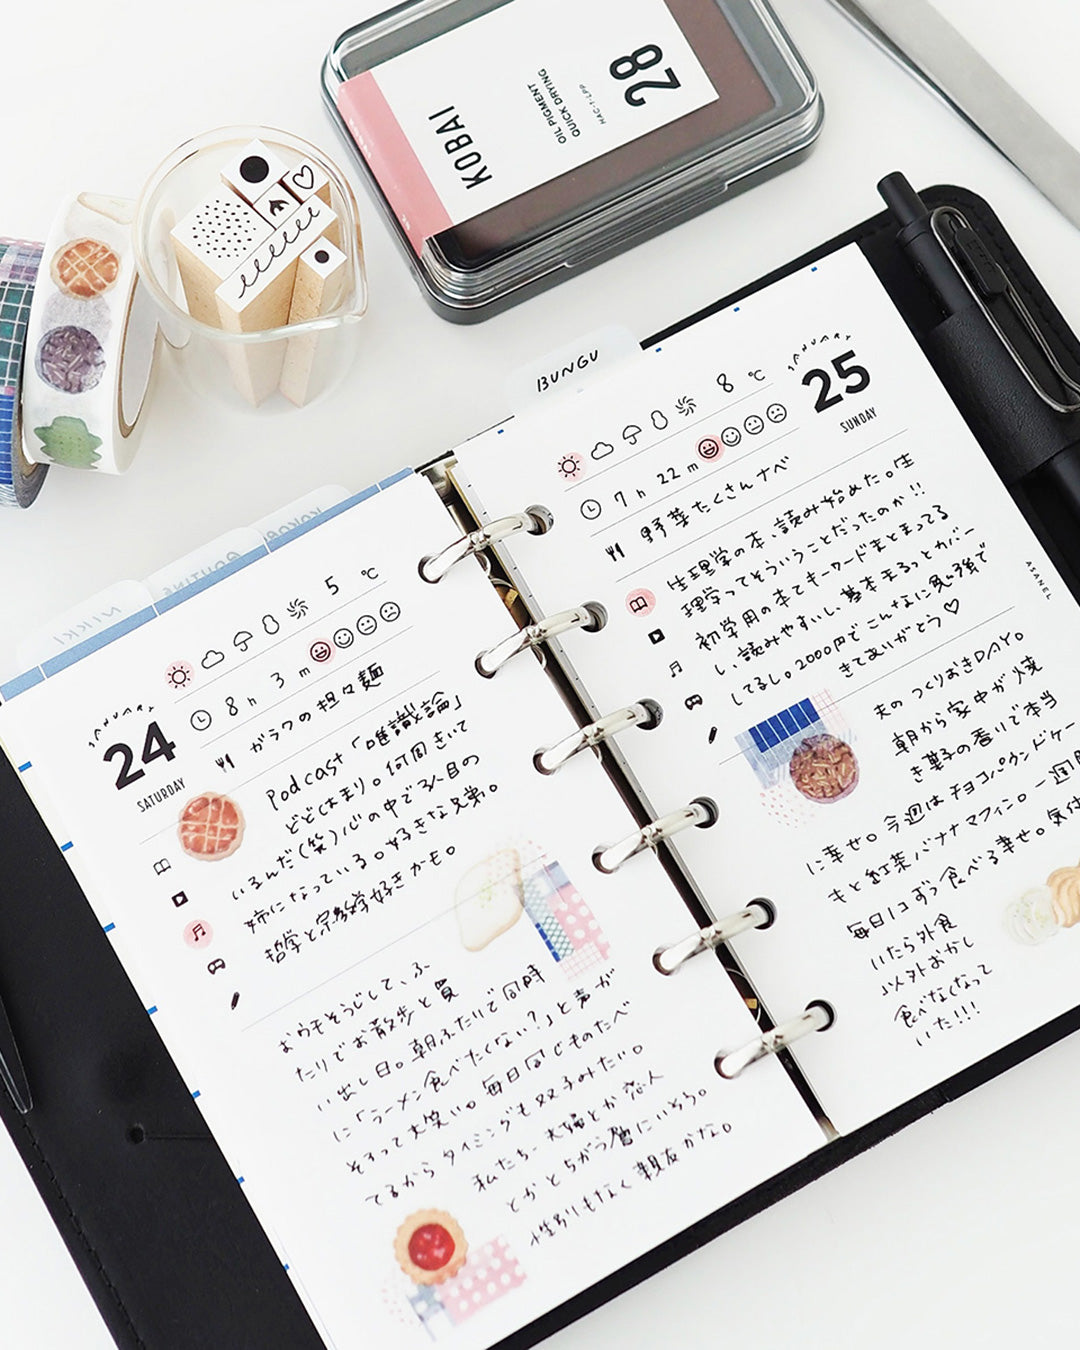 KOBAI
OIL PIGMENT
QUICK DRYING
HAC-1-LPP
28
BUNGU
KOKORO
ROUTINE
NIKKI
JANUARY
24
SATURDAY
5 ℃
8 h 3 m
ガラクの担々麺
Podcast「唯識論」
どどはまり。何周きいて
いるんだ(笑)心の中で3人目の
姉になっている。好きな兄弟。
哲学と宗教学好きかも。
おウチそうじして、ふ
たりでお散歩と買
い出し日。朝ふたりで同時
に「ラーメン食べたくない?」と声が
そろって大笑い。毎日同じものたべ
てるからタイミングも双子みたい。
私たち、夫婦とか恋人
とかとちがう層にいそう。
性別もなく親友かな。
JANUARY
25
SUNDAY
8 ℃
7 h 22 m
野草たくさんナベ
生理学の本、読み始めた。生
理学ってそういうことだったのか!!
初学用の本でキーワードまとまってる
し、読みやすいし、基本まるっとカバー
してるし。2000円でこんなに勉強で
きてありがとう♡
ASANEL
夫のつくりおきDAY。
朝から家中が焼
き菓子の香りで本当
に幸せ。今週はチョコパウンドケー
もと紅茶バナナマフィン。一週間
毎日1コずつ食べる幸せ。気付
いたら外食
以外おかし
食べなくなって
いた!!!